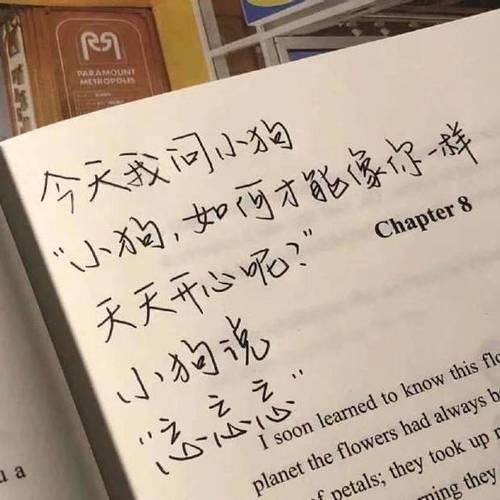 PARAMOUNT
METROPOLIS
今天我问小狗
"小狗,如何才能像你一样
天天开心呢?"
小狗说
"忘忘忘"
Chapter 8
I soon learned to know this flo
planet the flowers had always b
of petals; they took up
ning they
u a